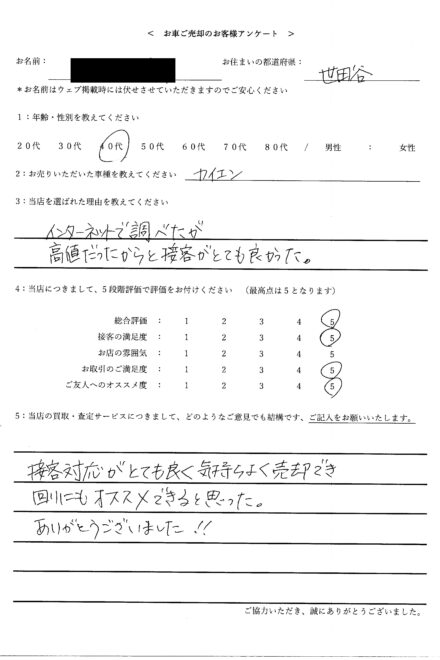 ＜ お車ご売却のお客様アンケート ＞
お名前： お住まいの都道府県： 世田谷
＊お名前はウェブ掲載時には伏せさせていただきますのでご安心ください
1：年齢・性別を教えてください
20代 30代 40代 50代 60代 70代 80代 / 男性 ： 女性
2：お売りいただいた車種を教えてください カイエン
3：当店を選ばれた理由を教えてください
インターネットで調べたが
高値だったからと接客がとても良かった。
4：当店につきまして、5段階評価で評価をお付けください （最高点は5となります）
総合評価 ： 1 2 3 4 5
接客の満足度 ： 1 2 3 4 5
お店の雰囲気 ： 1 2 3 4 5
お取引のご満足度 ： 1 2 3 4 5
ご友人へのオススメ度 ： 1 2 3 4 5
5：当店の買取・査定サービスにつきまして、どのようなご意見でも結構です、ご記入をお願いいたします。
接客対応がとても良く気持ちよく売却でき
回りにもオススメできると思った。
ありがとうございました!!
ご協力いただき、誠にありがとうございました。